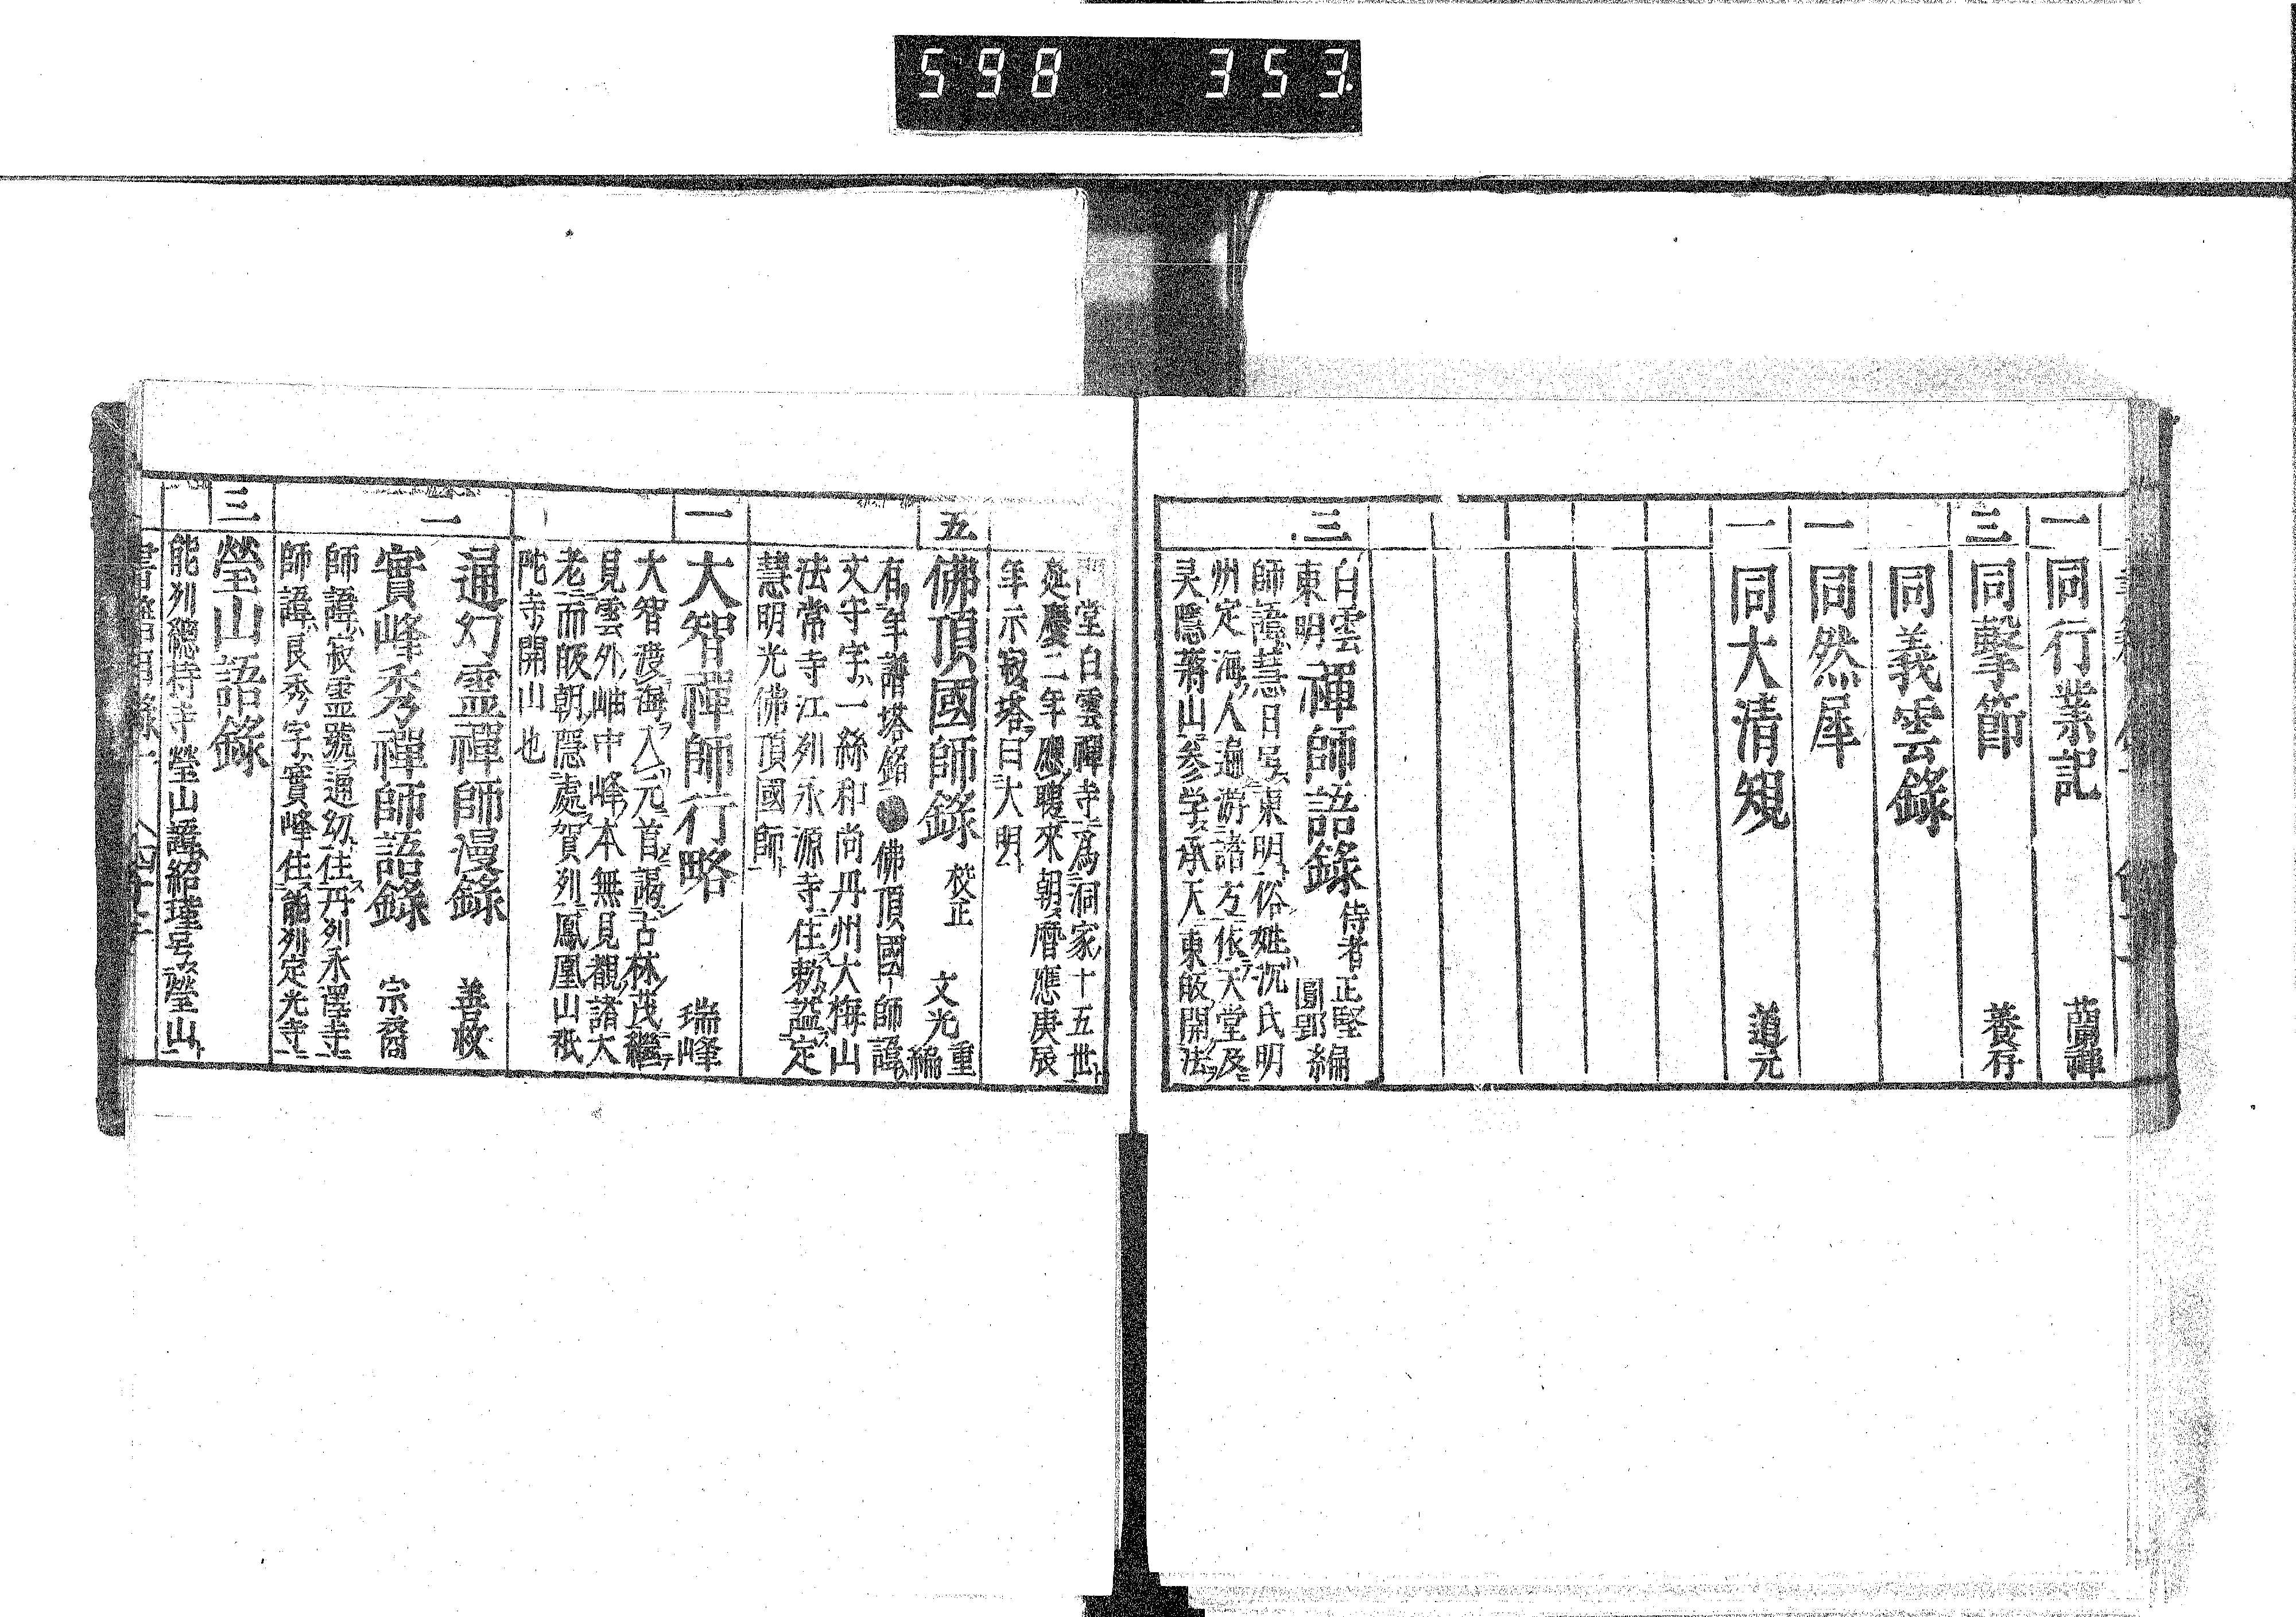 598 353
一 同行業記 蘭禪
三 同擊節 養存
同義雲錄
一 同然犀
一 同大清規 道元
三 白雲東明禪師語錄 侍者正堅圓鄂編
師諱ハ慧日号東明ト俗姓沉氏明
州定海ノ人遍游諸方依天堂及
灵隱蔣山ニ參学ス承天ノ東皈開法ヲ
堂白雲禪寺ニ爲洞家ノ十五世ト
延慶二年應聘來朝ス曆應庚辰
年示寂塔ヲ曰大明ト
五 佛頂國師錄 校正 文光重編
有年譜塔銘●佛頂國師諱ハ
文守字ハ一絲和尚丹州大梅山
法常寺江刕永源寺ニ住ス勅謚定
慧明光佛頂國師ト
一 大智禪師行略 瑞峰
大智渡海ヲ入元ニ首謁古林茂ニ繼テ
見雲外ノ岫中峰ノ本無見覩諸大
老ニ而皈朝ノ隱處ス賀刕鳳凰山祇
陀寺開山也
一 通幻靈禪師漫錄 善牧
實峰秀禪師語錄 宗裔
師諱ハ寂灵號ス通幻ト住ス丹刕永澤寺ニ
師諱ハ良秀字ハ實峰住ス能刕定光寺ニ
三 瑩山語錄
能刕總持寺瑩山諱ハ紹瑾号ス瑩山ト